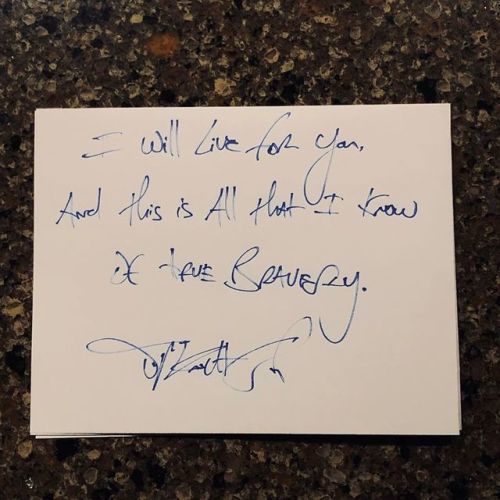 I Will Live for You,
And this is All that I Know
Of True Bravery.